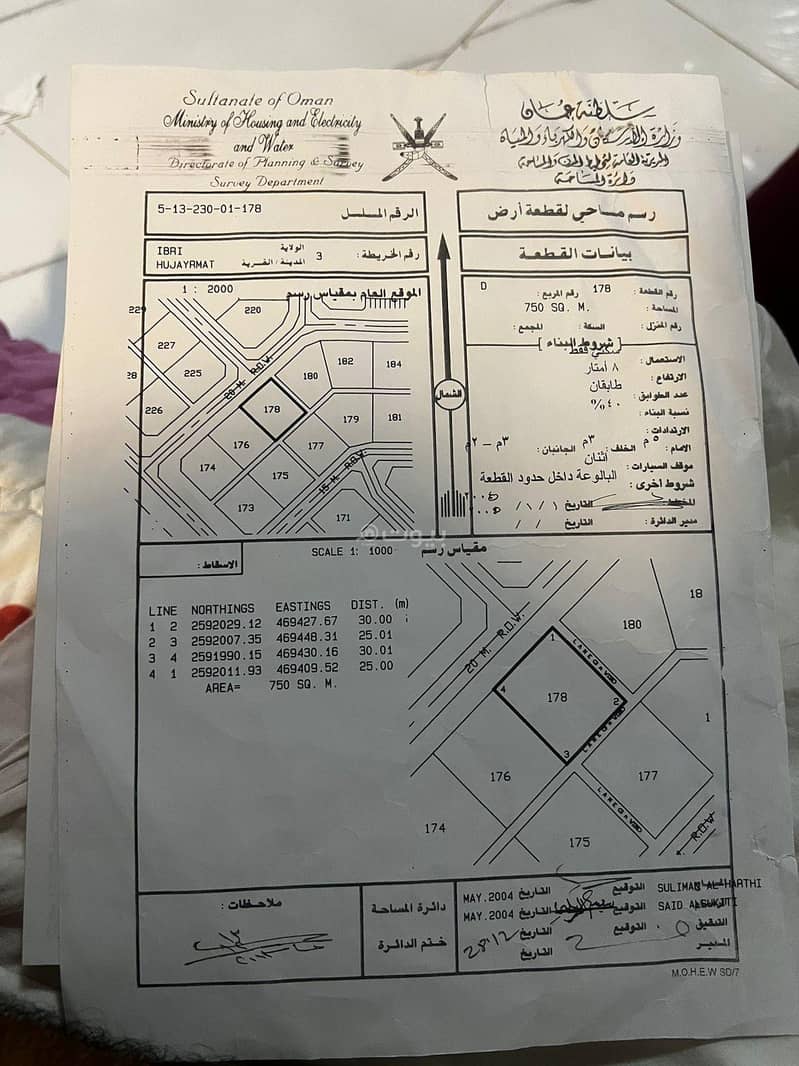 Sultanate of Oman
Ministry of Housing and Electricity
and Water
Directorate of Planning & Survey
Survey Department
سلطنة عمان
وزارة الإسكان والكهرباء والمياه
دائرة المساحة
رسم مساحي لقطعة أرض
الرقم المسلسل
5-13-230-01-178
بيانات القطعة
رقم الخريطة : 3
الولاية IBRI
المدينة / القرية HUJAYRMAT
رقم القطعة : 178 رقم المربع : D
المساحة : 750 SQ. M.
رقم المنزل : السكة : المجمع :
شروط البناء
الاستعمال : سكني فقط
الارتفاع : ٨ أمتار
عدد الطوابق : طابقان
نسبة البناء : ٤٠ %
الارتدادات :
الامام : ٥ م الخلف : ٣م الجانبان : ٣م – ٢م
موقف السيارات : أثنان
شروط أخرى : البالوعة داخل حدود القطعة
التاريخ / /
مدير الدائرة : التاريخ / /
الموقع العام بمقياس رسم
1 : 2000
الشمال
229
220
227
228
225
226
20 M. R.O.W.
180
182
184
178
179
181
176
177
174
175
173
171
15 M. R.O.W.
بيوت
مقياس رسم
SCALE 1: 1000
الاسقاط :
LINE NORTHINGS EASTINGS DIST. (m)
1 2 2592029.12 469427.67 30.00
2 3 2592007.35 469448.31 25.01
3 4 2591990.15 469430.16 30.01
4 1 2592011.93 469409.52 25.00
AREA= 750 SQ. M.
20 M. R.O.W.
18
180
1
178
4
2
3
1
176
177
174
175
R.O.W
ملاحظات :
دائرة المساحة
ختم الدائرة
SULIMAN AL-HARTHI التوقيع التاريخ MAY.2004
SAID ALSUKITI التوقيع التاريخ MAY.2004
التدقيق التوقيع التاريخ
المدير التاريخ
M.O.H.E.W SD/7